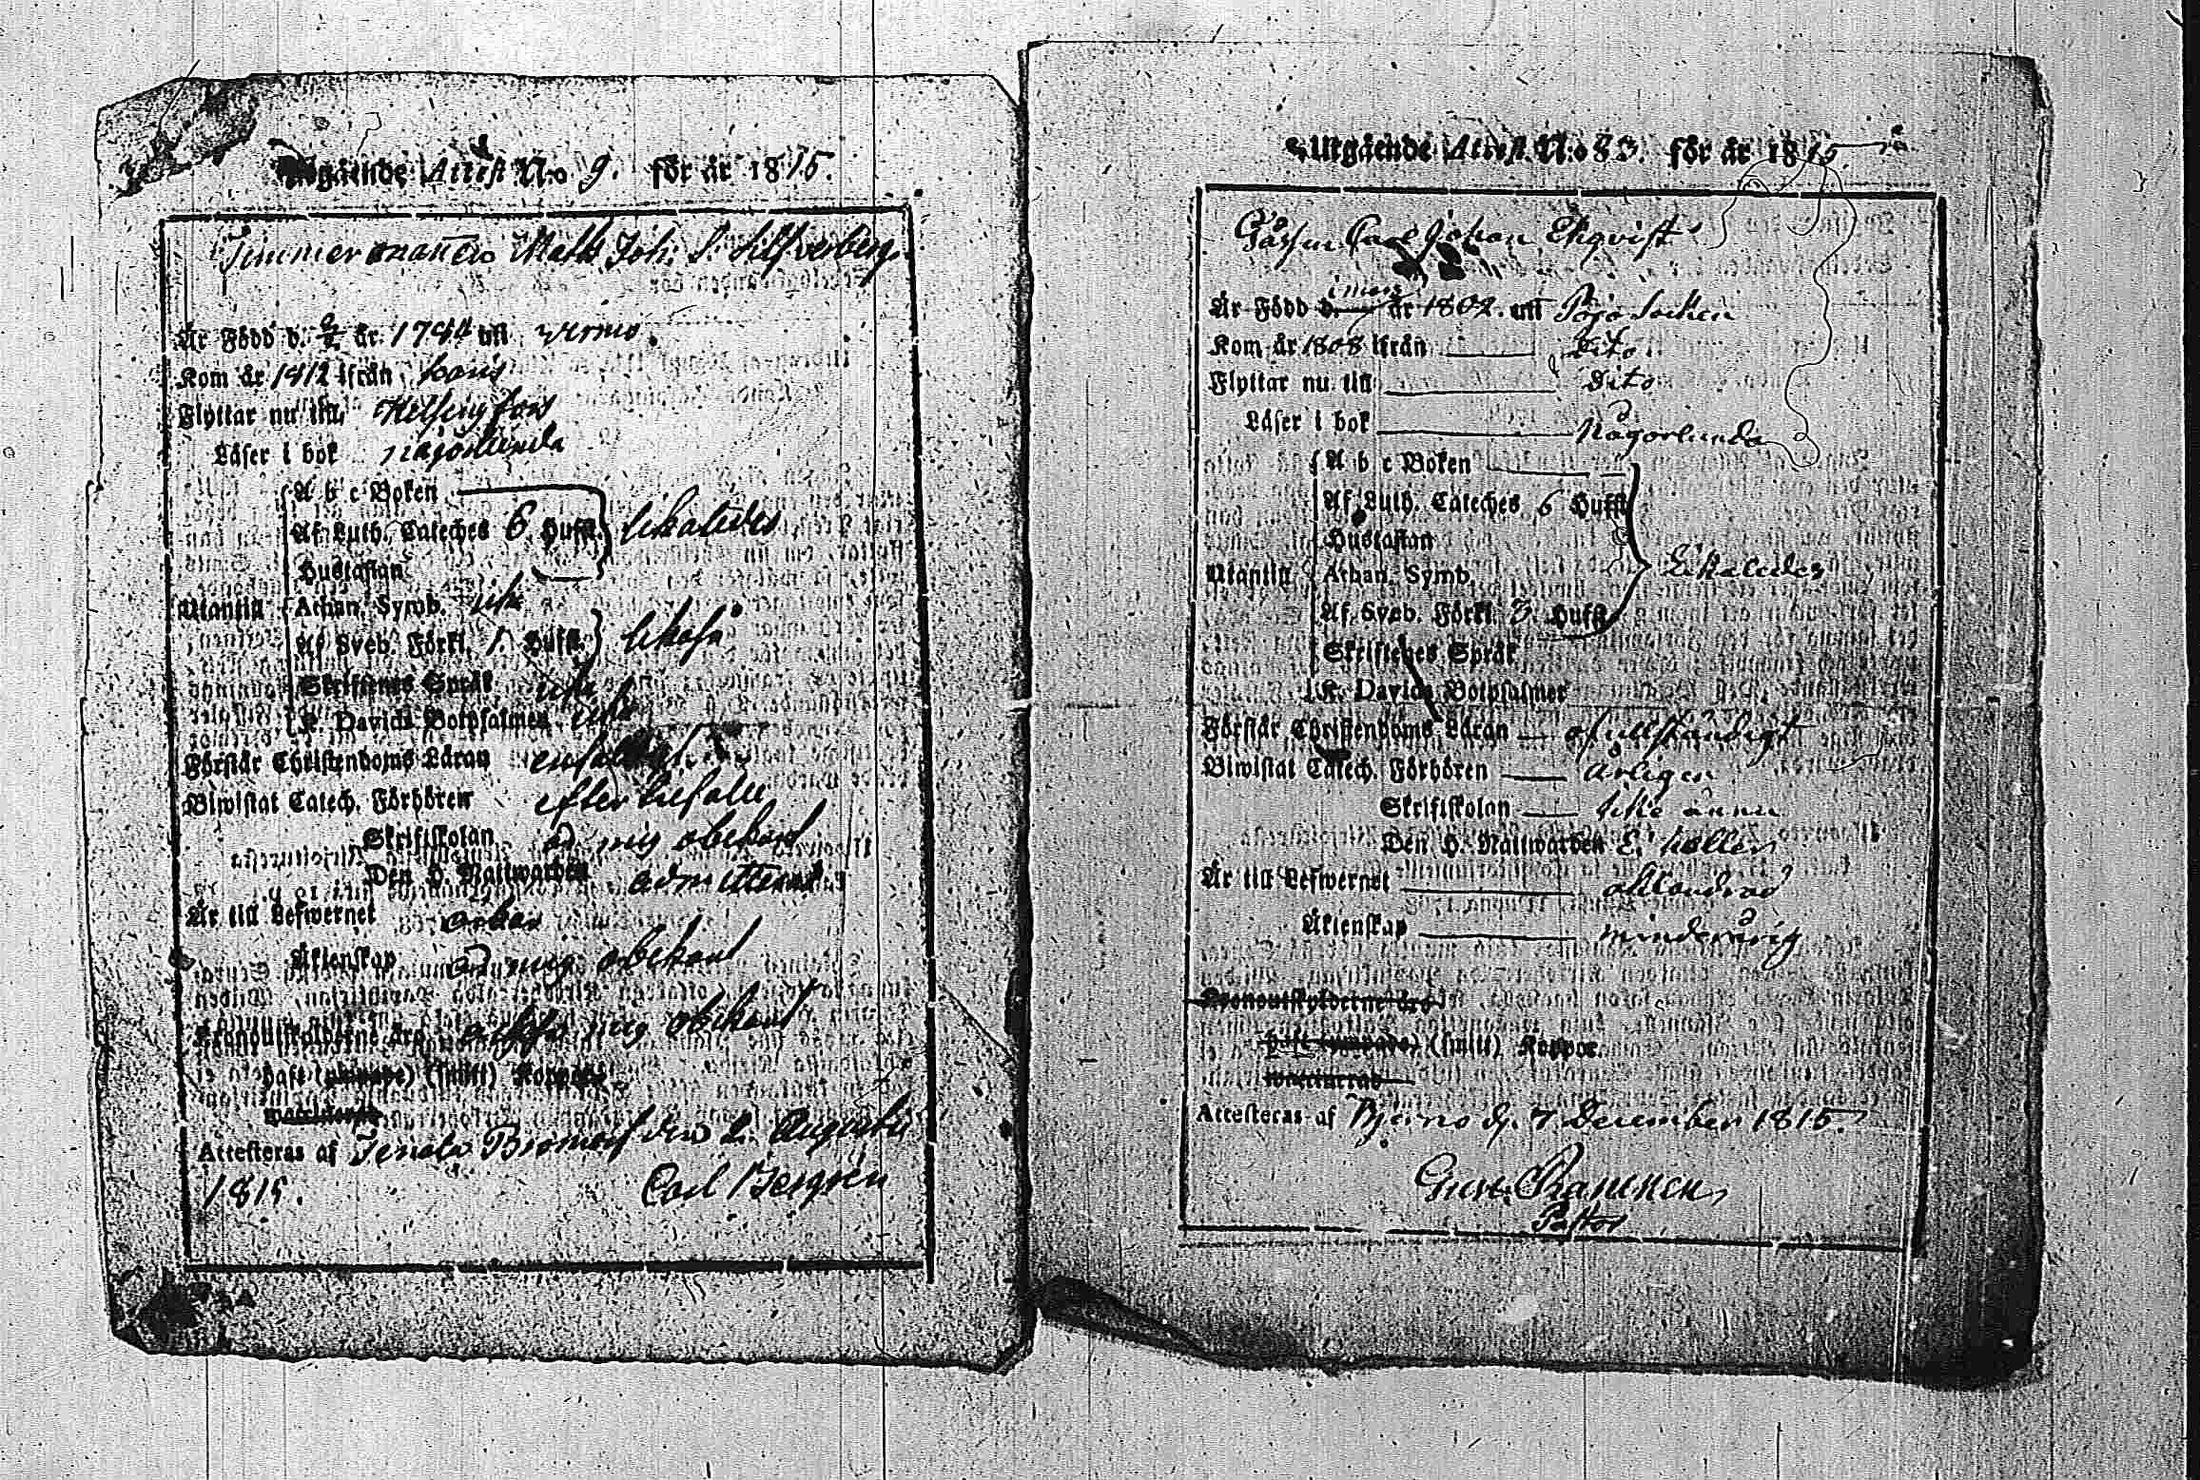 Utgående Attest N:o 9. för år 1815.
Timmermannen Math Joh. S. Silfverberg.
Är Född d. år 1794 uti virmo.
Kom år 1812 ifrån
Flyttar nu till Helsingfors
Läser i bok någorlunda
A b c Boken
Af Luth. Cateches 6 Hufst. likaledes
Hustaflan
Utantill Athan. Symb.
Af Sveb. Förkl. 1. Hufst. likaså
Skriftenes Språk
K. Davids Botpsalmer
Förstår Christendoms Läran
Biwistat Catech. Förhören efter
Skriftskolan mig obekant
Den H. Nattwarden admitterad
Är till Lefwernet
Äktenskap mig obekant
Kronoutskylderne äro mig obekant
haft (ympade) (smitt) Koppor
waccinerad
Attesteras af Tenala Bromarf den 2. Augusti
1815. Carl Bergren
Utgående Attest N:o 83. för år 1815
Gossen Carl Johan Ekqvist
Är Född d. år 1802. uti Pojo Socken
Kom år 1808 ifrån Dito
Flyttar nu till Dito
Läser i bok Någorlunda
A b c Boken
Af Luth. Cateches 6 Hufst.
Hustaflan
Utantill Athan. Symb. Likaledes
Af Sveb. Förkl. 3. Hufst.
Skriftenes Språk
K. Davids Botpsalmer
Förstår Christendoms Läran ofullständigt
Biwistat Catech. Förhören Årligen
Skriftskolan icke ännu
Den H. Nattwarden Ej heller
Är till Lefwernet oklandrad
Äktenskap minderårig
Kronoutskylderne äro
haft (ympade) (smitt) Koppor.
waccinerad
Attesteras af Bjerno d. 7 December 1815.
Gust.
Pastor